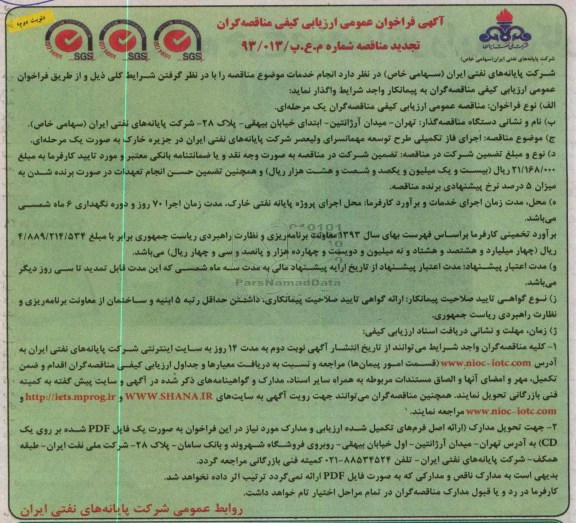 نوبت دوم
آگهی فراخوان عمومی ارزیابی کیفی مناقصه‌گران
تجدید مناقصه شماره م.ع.پ/۹۳/۰۱۳
SGS SGS SGS
شرکت پایانه‌های نفتی ایران(سهامی خاص)
شرکت پایانه‌های نفتی ایران (سهامی خاص) در نظر دارد انجام خدمات موضوع مناقصه را با در نظر گرفتن شرایط کلی ذیل و از طریق فراخوان
عمومی ارزیابی کیفی مناقصه‌گران به پیمانکار واجد شرایط واگذار نماید:
الف) نوع فراخوان: مناقصه عمومی ارزیابی کیفی مناقصه‌گران یک مرحله‌ای.
ب) نام و نشانی دستگاه مناقصه‌گذار: تهران- میدان آرژانتین- ابتدای خیابان بیهقی- پلاک ۲۸- شرکت پایانه‌های نفتی ایران (سهامی خاص).
ج) موضوع مناقصه: اجرای فاز تکمیلی طرح توسعه مهمانسرای ولیعصر شرکت پایانه‌های نفتی ایران در جزیره خارک به صورت یک مرحله‌ای.
د) نوع و مبلغ تضمین شرکت در مناقصه: تضمین شرکت در مناقصه به صورت وجه نقد و یا ضمانتنامه بانکی معتبر و مورد تایید کارفرما به مبلغ
۲۱/۱۶۸/۰۰۰ ریال (بیست و یک میلیون و یکصد و شصت و هشت هزار ریال) و همچنین تضمین حسن انجام تعهدات در صورت برنده شدن به
میزان ۵ درصد نرخ پیشنهادی برنده مناقصه.
ه) محل، مدت زمان اجرای خدمات و برآورد کارفرما: محل اجرای پروژه پایانه نفتی خارک، مدت زمان اجرا ۷۰ روز و دوره نگهداری ۶ ماه شمسی
می‌باشد.
برآورد تخمینی کارفرما براساس فهرست بهای سال ۱۳۹۳ معاونت برنامه‌ریزی و نظارت راهبردی ریاست جمهوری برابر با مبلغ ۴/۸۸۹/۲۱۴/۵۳۴
ریال (چهار میلیارد و هشتصد و هشتاد و نه میلیون و دویست و چهارده هزار و پانصد و سی و چهار ریال) می‌باشد.
و) مدت اعتبار پیشنهاد: مدت اعتبار پیشنهاد از تاریخ ارایه پیشنهاد مالی به مدت سه ماه شمسی که این مدت قابل تمدید تا سی روز دیگر
می‌باشد.
ParsNamadData
ز) نوع گواهی تایید صلاحیت پیمانکار: ارائه گواهی تایید صلاحیت پیمانکاری، داشتن حداقل رتبه ۵ ابنیه و ساختمان از معاونت برنامه‌ریزی و
نظارت راهبردی ریاست جمهوری.
ژ) زمان، مهلت و نشانی دریافت اسناد ارزیابی کیفی:
۱- کلیه مناقصه‌گران واجد شرایط می‌توانند از تاریخ انتشار آگهی نوبت دوم به مدت ۱۴ روز به سایت اینترنتی شرکت پایانه‌های نفتی ایران به
آدرس www.nioc-iotc.com (قسمت امور پیمان‌ها) مراجعه و نسبت به دریافت معیارها و جداول ارزیابی کیفی مناقصه‌گران اقدام و ضمن
تکمیل، مهر و امضای آنها و الصاق مستندات مربوطه به همراه سایر اسناد، مدارک و گواهینامه‌های ذکر شده در آگهی و سایت پیش گفته به کمیته
فنی بازرگانی تحویل نمایند. همچنین مناقصه‌گران می‌توانند جهت رویت آگهی به سایت‌های WWW.SHANA.IR و http://iets.mporg.ir و
www.nioc-iotc.com مراجعه نمایند.
۲- جهت تحویل مدارک (ارائه اصل فرم‌های تکمیل شده ارزیابی و مدارک مورد نیاز در این فراخوان به صورت یک فایل PDF شده بر روی یک
CD) به آدرس تهران- میدان آرژانتین- اول خیابان بیهقی- روبروی فروشگاه شهروند و بانک سامان- پلاک ۲۸- شرکت ملی نفت ایران- طبقه
همکف- شرکت پایانه‌های نفتی ایران- تلفن ۸۸۵۳۴۵۲۴-۰۲۱ کمیته فنی بازرگانی مراجعه گردد.
بدیهی است به مدارک ناقص و مدارکی که به صورت فایل PDF ارائه نمی‌گردد ترتیب اثر داده نخواهد شد.
کارفرما در رد و یا قبول مدارک مناقصه‌گران در تمام مراحل اختیار تام خواهد داشت.
روابط عمومی شرکت پایانه‌های نفتی ایران